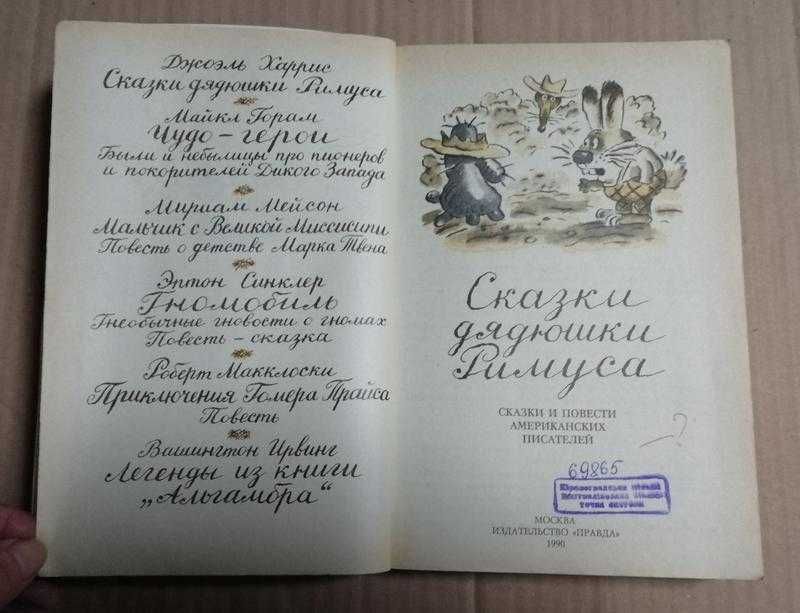 Джоэль Харрис
Сказки дядюшки Римуса
Майкл Горам
Чудо-герои
Были и небылицы про пионеров
и покорителей Дикого Запада
Мириам Мейсон
Мальчик с Великой Миссисипи
Повесть о детстве Марка Твена
Эптон Синклер
Гномобиль
Гнеобычные гновости о гномах
Повесть-сказка
Роберт Макклоски
Приключения Гомера Прайса
Повесть
Вашингтон Ирвинг
Легенды из книги
„Альгамбра“
Сказки
дядюшки
Римуса
СКАЗКИ И ПОВЕСТИ
АМЕРИКАНСКИХ
ПИСАТЕЛЕЙ
—?
69865
МОСКВА
ИЗДАТЕЛЬСТВО «ПРАВДА»
1990